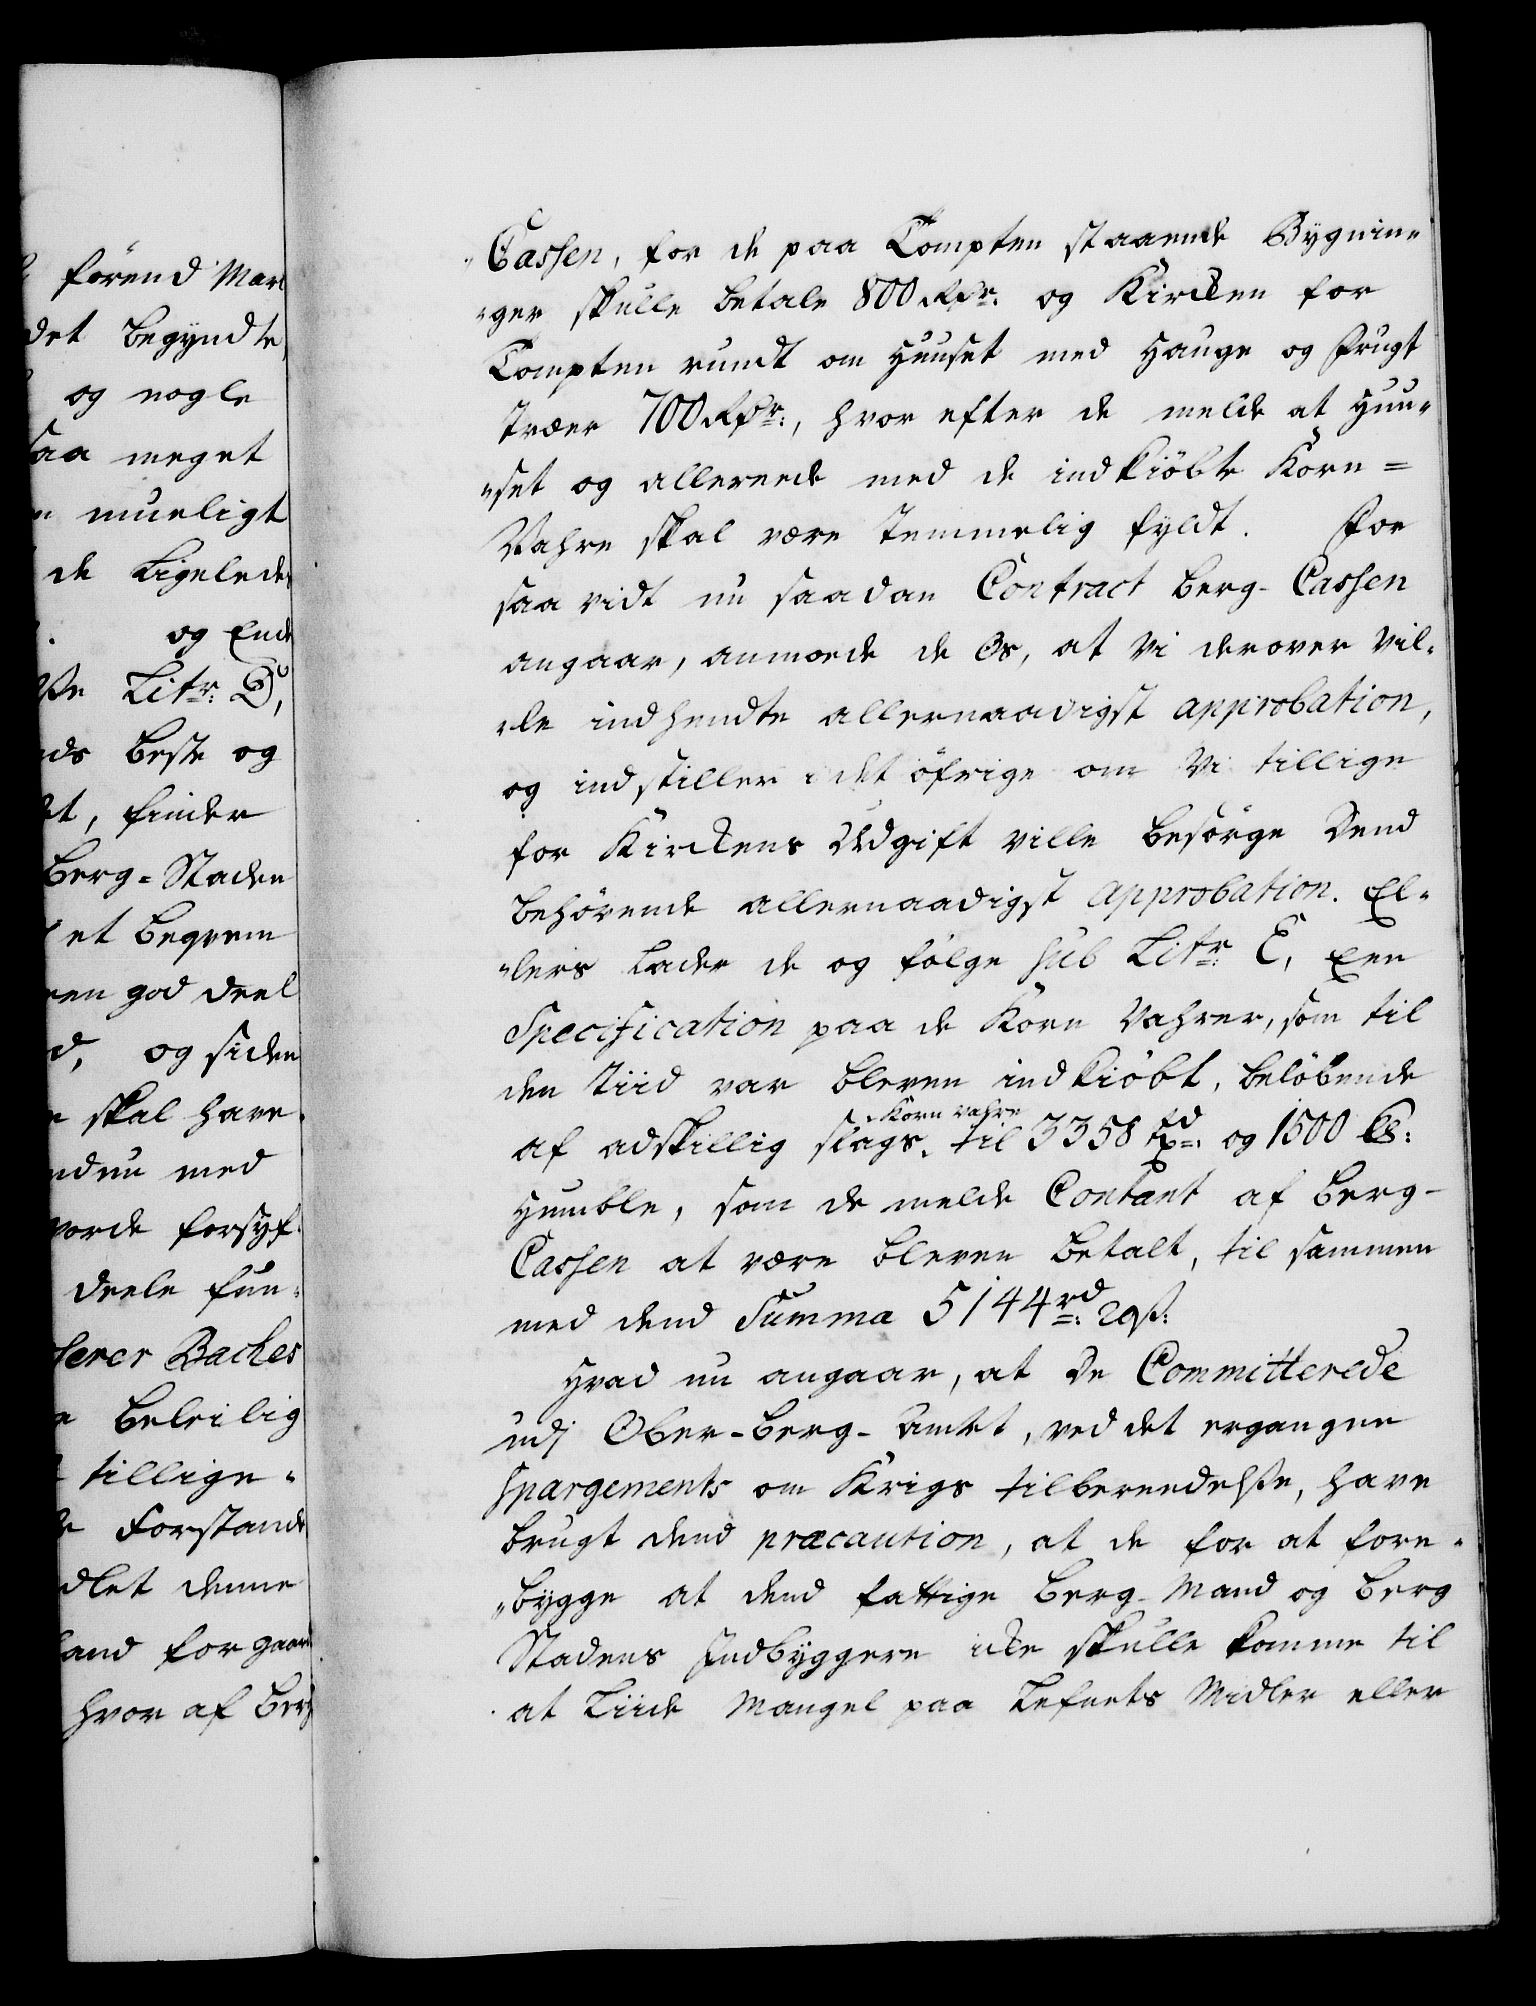 förend Mar
det begyndte,
og nogle
saa meget
mueligt
de Ligelede
og Ende
Litr: D,
beste og
finder
Berg-Staden
et beqvem
en god deel
og siden
skal have
endnu med
vorde forsyf
deele fun-
serer Baches
beleilig
tillige-
Forstand
dlet denne
land for gaar
hvor af Ber
"Cassen, for de paa Tompten staaende Bygnin"
"ger skulle betale 800 Rdr: og Kircken for
Tompten rundt om Huuset med Hauge og Frugt
Træer 700 Rdr:, hvor efter de melde at Huu"
"set og allereede med de indkiöbte Korn=
Vahre skal være temmelig fyldt. For
saa vidt nu saadan Contract Berg-Cassen
angaar, anmode de Os, at Vi derover vil-
"le indhendte allernaadigst approbation,
og indstiller i det öfrige om Vi tillige
for Kirckens Udgift ville besörge Dend
behörende allernaadigst approbation. El"
"lers Lader de og fölge sub Litr: E, Een
Specification paa de Korn Vahrer, som til
den Tiid var bleven indkiöbt, belöbende
af adskillig slags Korn vahre til 3358 Td: og 1500 lb:
Humble, som de melde Contant af Berg-
Cassen at være bleven betalt, til sammen
med dend Summa 5144 rd: 20 s:
Hvad nu angaar, at De Committerede
udj Ober-Berg-Amtet, ved det ergangne
Spargements om Krigs tilbereedelße, have
brugt dend præcaution, at de for at fore"
"bygge at dend fattige Berg-Mand og Berg
Stadens Indbyggere icke skulle komme til
at Liide Mangel paa Lefnets Midler eller